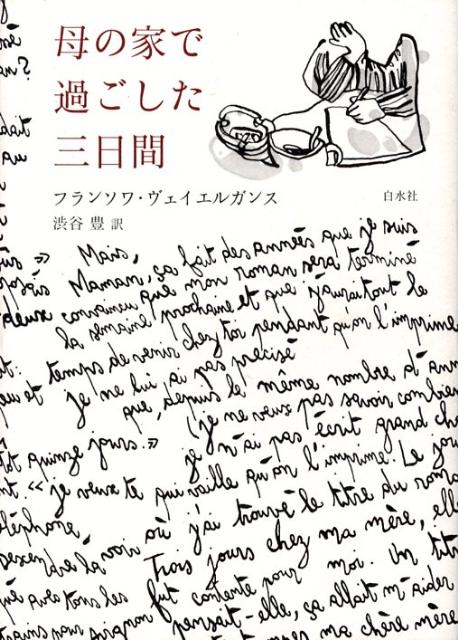 母の家で
過ごした
三日間
フランソワ・ヴェイエルガンス
渋谷 豊 訳
白水社
né
an?
dait
au
Mais,
Maman, ça fait des années que je suis
deux convaincu que mon roman sera terminé
la semaine prochaine et que j'aurai tout le
temps de venir chez toi pendant qu'on l'imprime
peu et je ne lui ai pas précisé
que, depuis le même nombre d'ann
(je ne veux pas savoir combien
quinze jours. » je n'ai pas écrit grand ch
nt « je veux te qui vaille qu'on l'imprime. Le jou
téléphone, voir où j'ai trouvé le titre du roma
descendre la Trois jours chez ma mère, elle
avec tous les fut contente pour moi. Un titr
trains pour Avignon pensait-elle, ça allait m'aider
ma chère mère